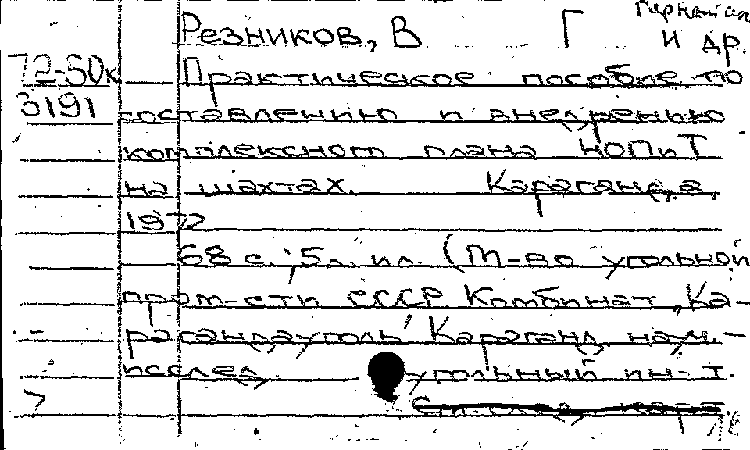 Резников, В Г и др.
72-50к Практическое пособие по
3191 составлению и внедрению
комплексного плана НОПиТ
на шахтах. Караганда,
1972
68 с.; 5 л. ил. (М-во угольной
пром-сти СССР Комбинат "Ка-
рагандауголь" Караганд. науч.-
исслед. угольный ин-т.